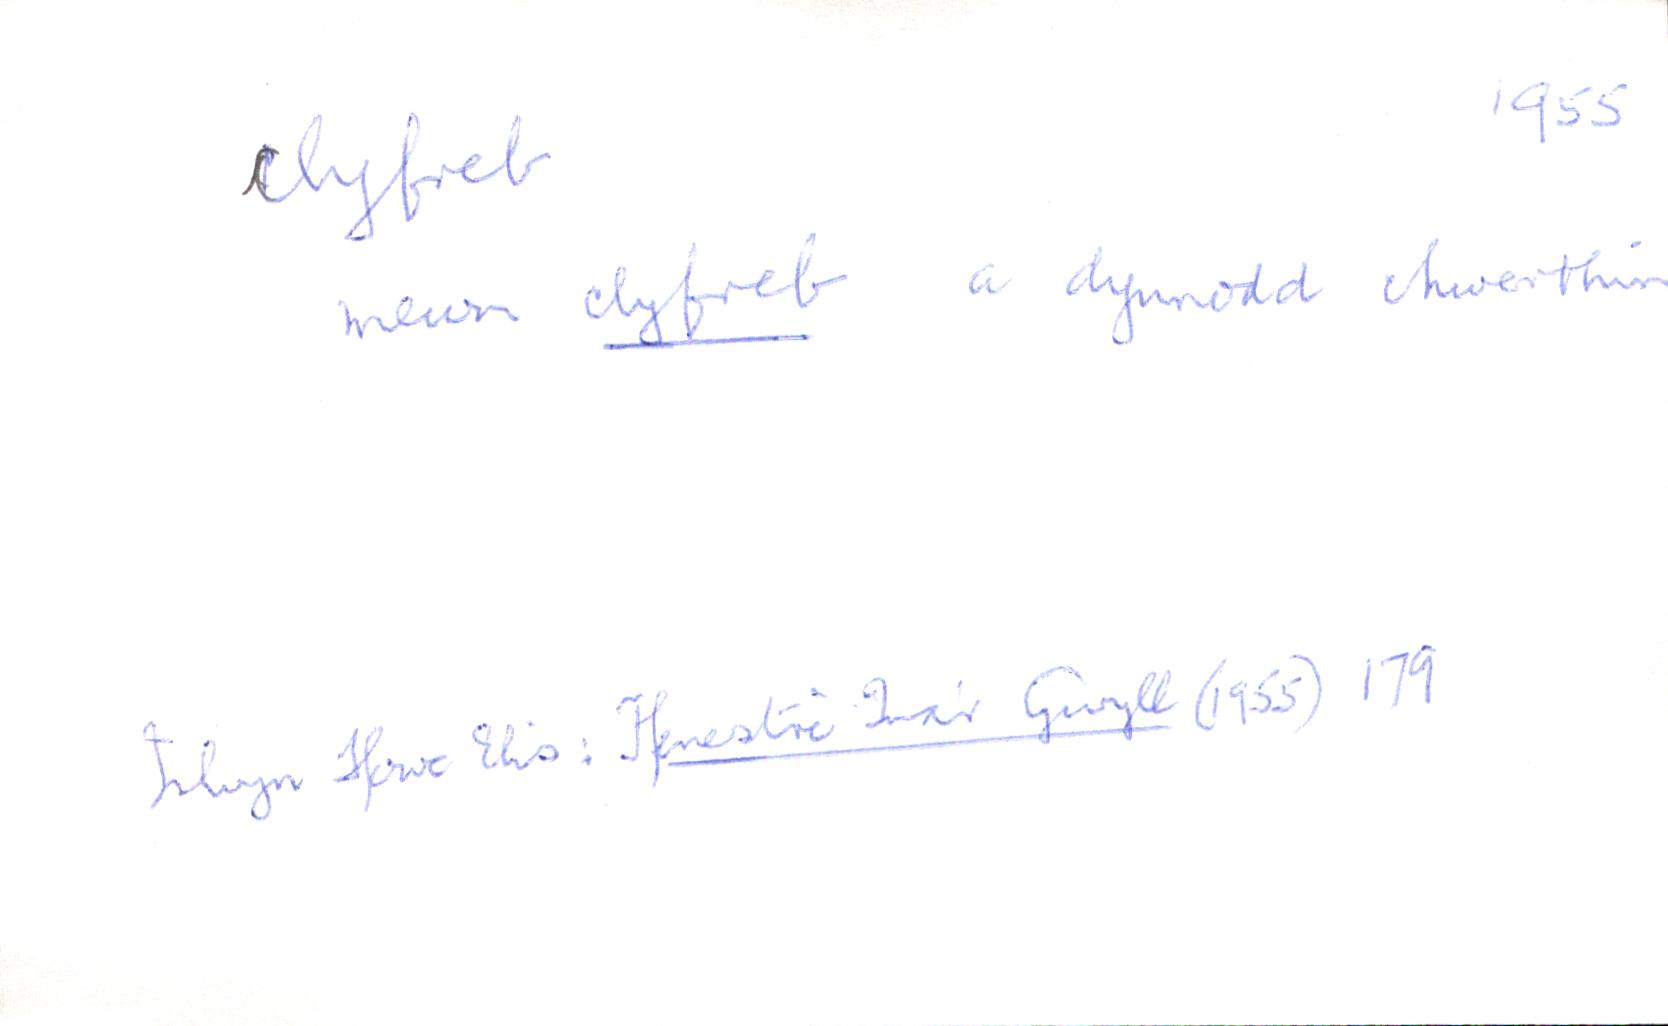 1955
clyfreb
mewn clyfreb a dynnodd chwerthin
Islwyn Ffowc Elis: Ffenestri Tua'r Gwyll (1955) 179